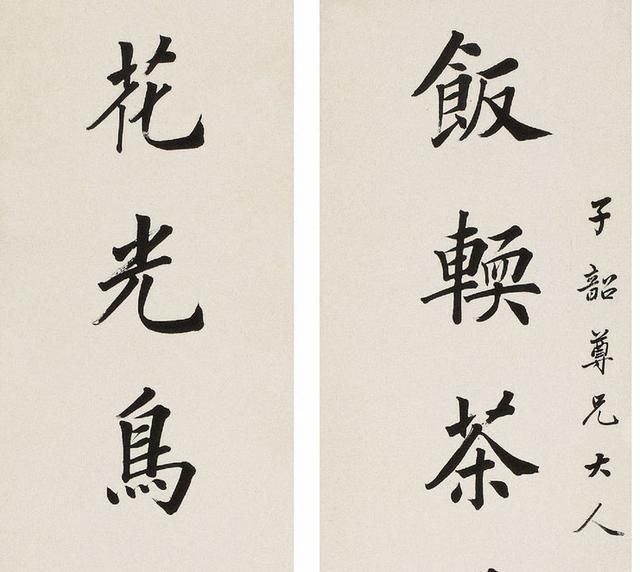 子韶尊兄大人
飯輭茶
花光鳥